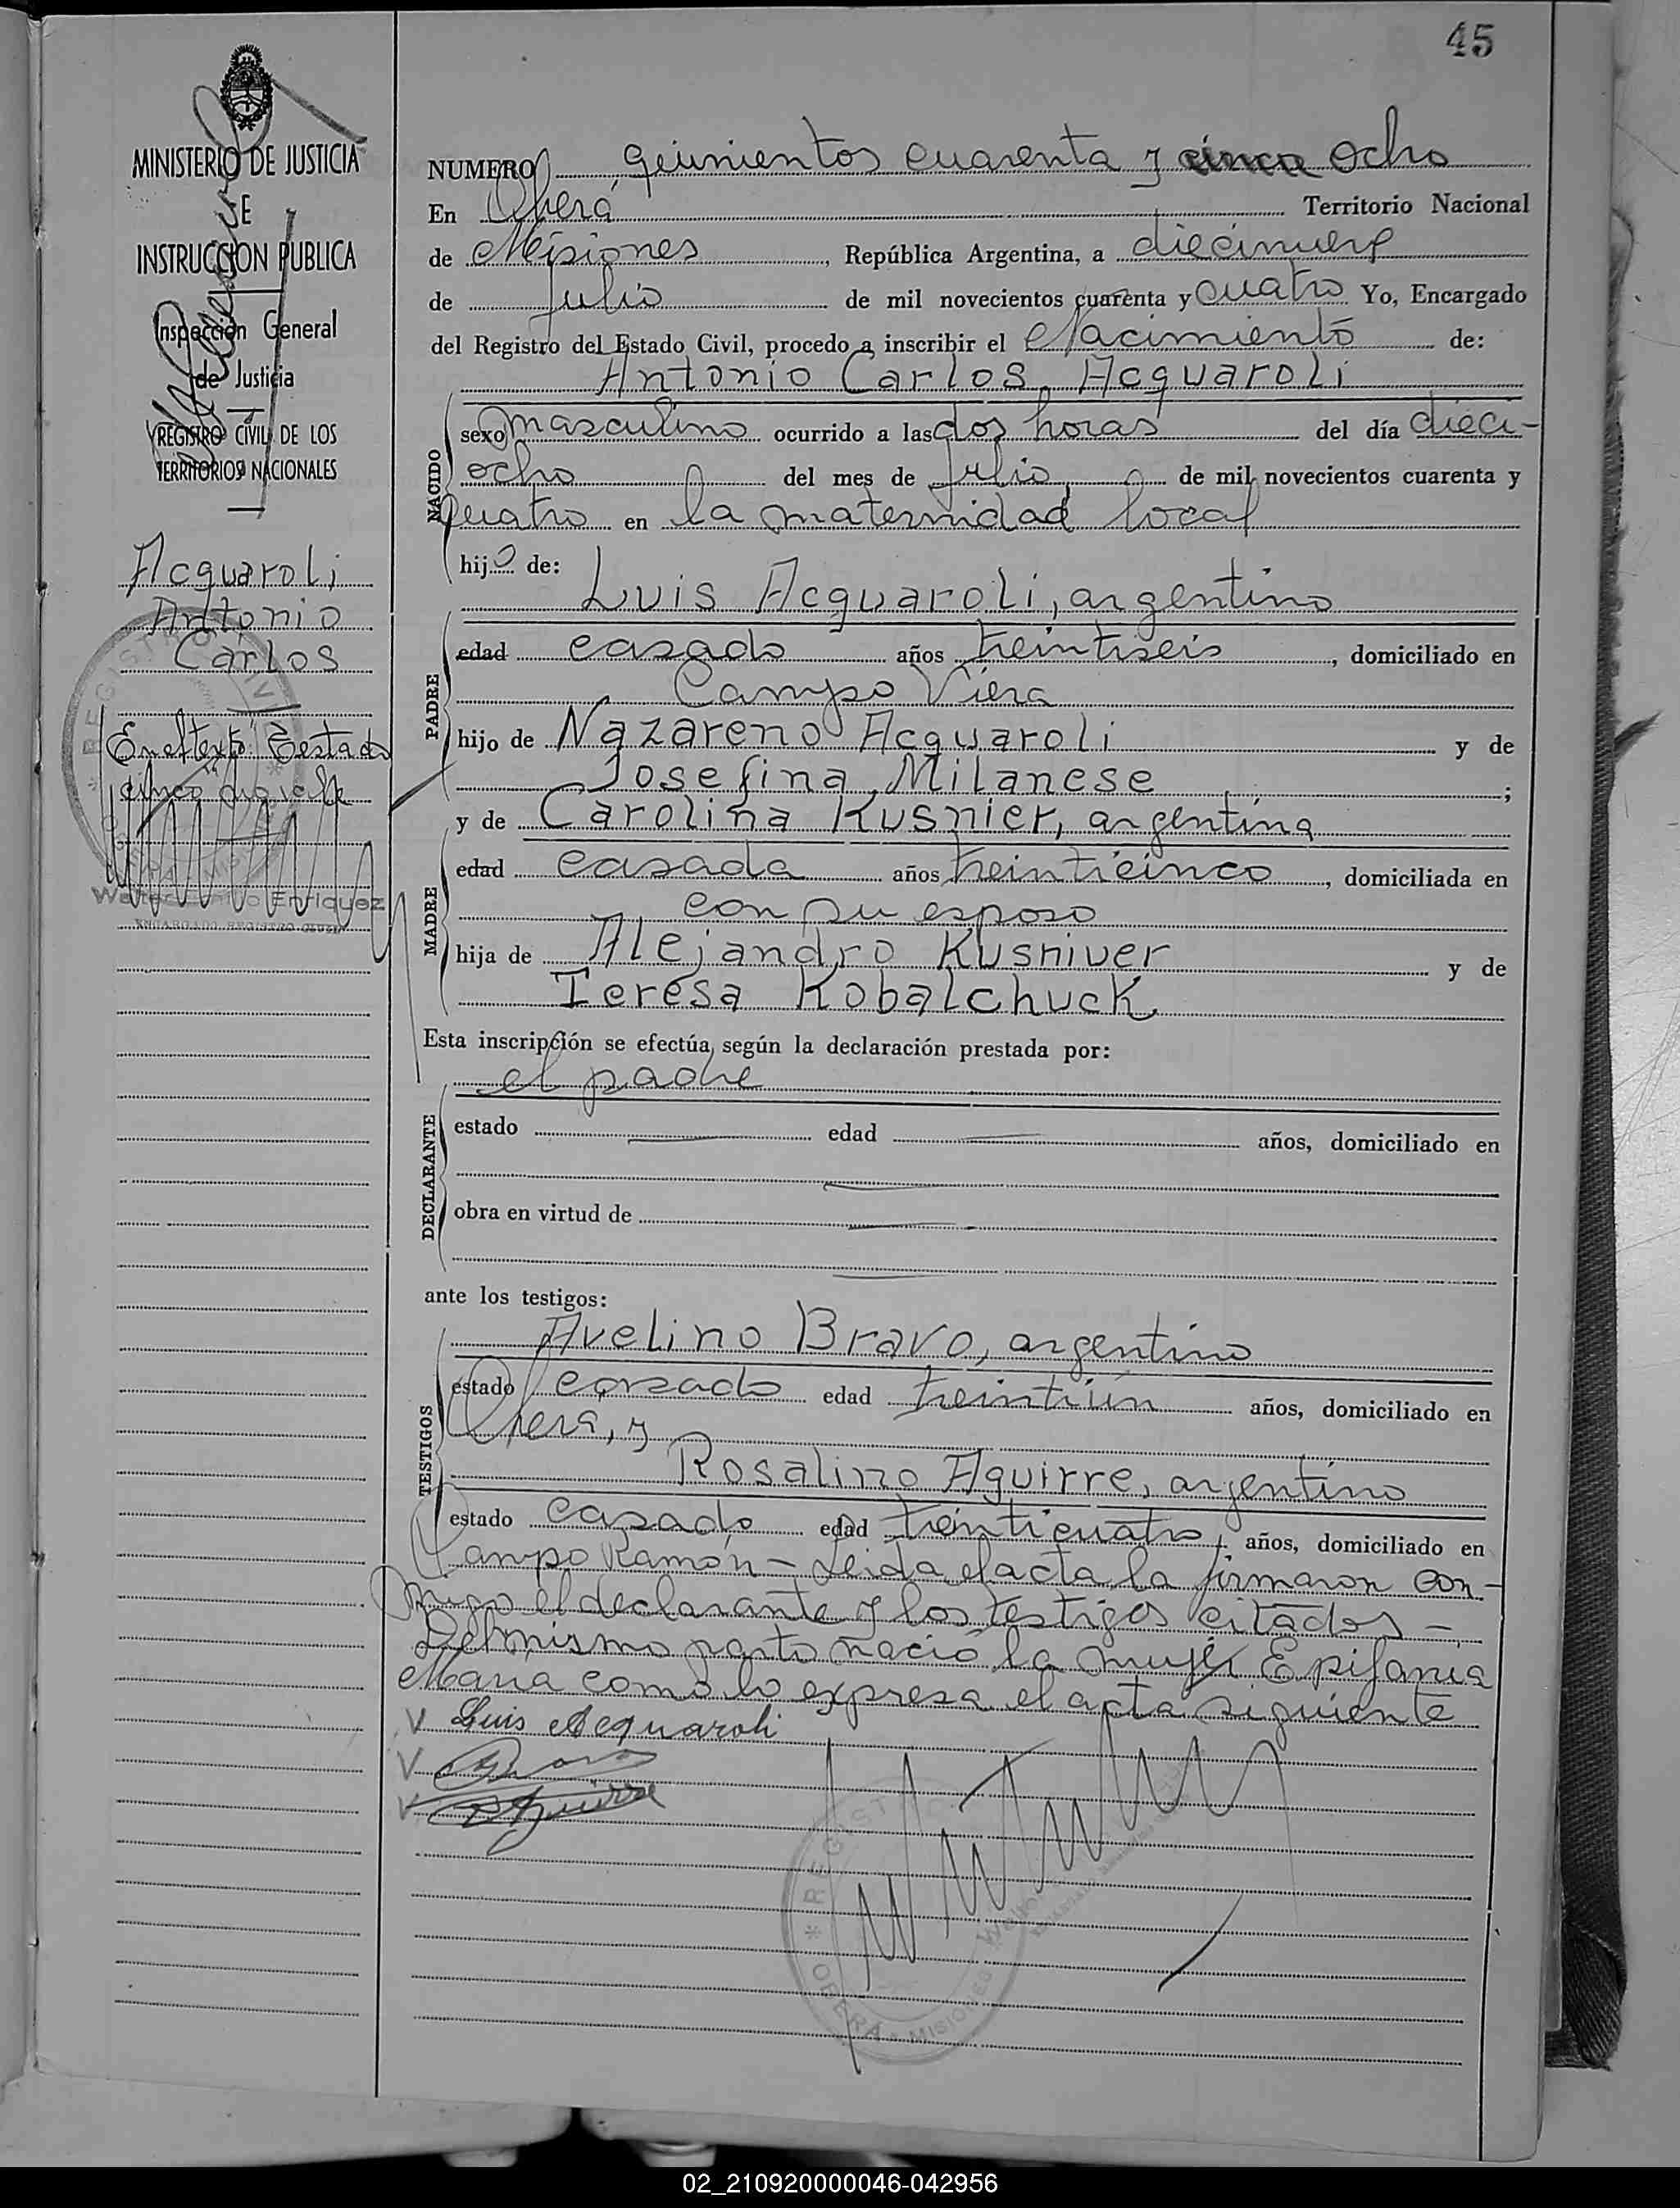 45
MINISTERIO DE JUSTICIA
E
INSTRUCCION PUBLICA
Inspección General
de Justicia
REGISTRO CIVIL DE LOS
TERRITORIOS NACIONALES
Acquaroli
Antonio
Carlos
En el texto: Testado
"cinco" no vale
Enriquez
ENCARGADO REGISTRO CIVIL
NUMERO quinientos cuarenta y cinco ocho
En Oberá Territorio Nacional
de Misiones, República Argentina, a diecinueve
de Julio de mil novecientos cuarenta y cuatro Yo, Encargado
del Registro del Estado Civil, procedo a inscribir el Nacimiento de:
Antonio Carlos Acquaroli
NACIDO
sexo masculino ocurrido a las dos horas del día dieci-
ocho del mes de Julio de mil novecientos cuarenta y
cuatro en la maternidad local
hijo de:
Luis Acquaroli, argentino
PADRE
edad casado años treintiseis, domiciliado en
Campo Viera
hijo de Nazareno Acquaroli y de
Josefina Milanese;
y de Carolina Kusnier, argentina
MADRE
edad casada años treinticinco, domiciliada en
con su esposo
hija de Alejandro Kusniver y de
Teresa Kobalchuck
Esta inscripción se efectúa, según la declaración prestada por:
el padre
DECLARANTE
estado edad años, domiciliado en
obra en virtud de
ante los testigos:
Avelino Bravo, argentino
TESTIGOS
estado casado edad treintiún años, domiciliado en
Oberá, y
Rosalino Aguirre, argentino
estado casado edad treinticuatro, años, domiciliado en
Campo Ramón - Leída el acta la firmaron con-
migo el declarante y los testigos citados -
Del mismo parto nació la mujer Epifania
Maria como lo expresa el acta siguiente
V Luis Acquaroli
V Bravo
V Aguirre
REGISTRO
OBERA MISIONES
02_210920000046-042956